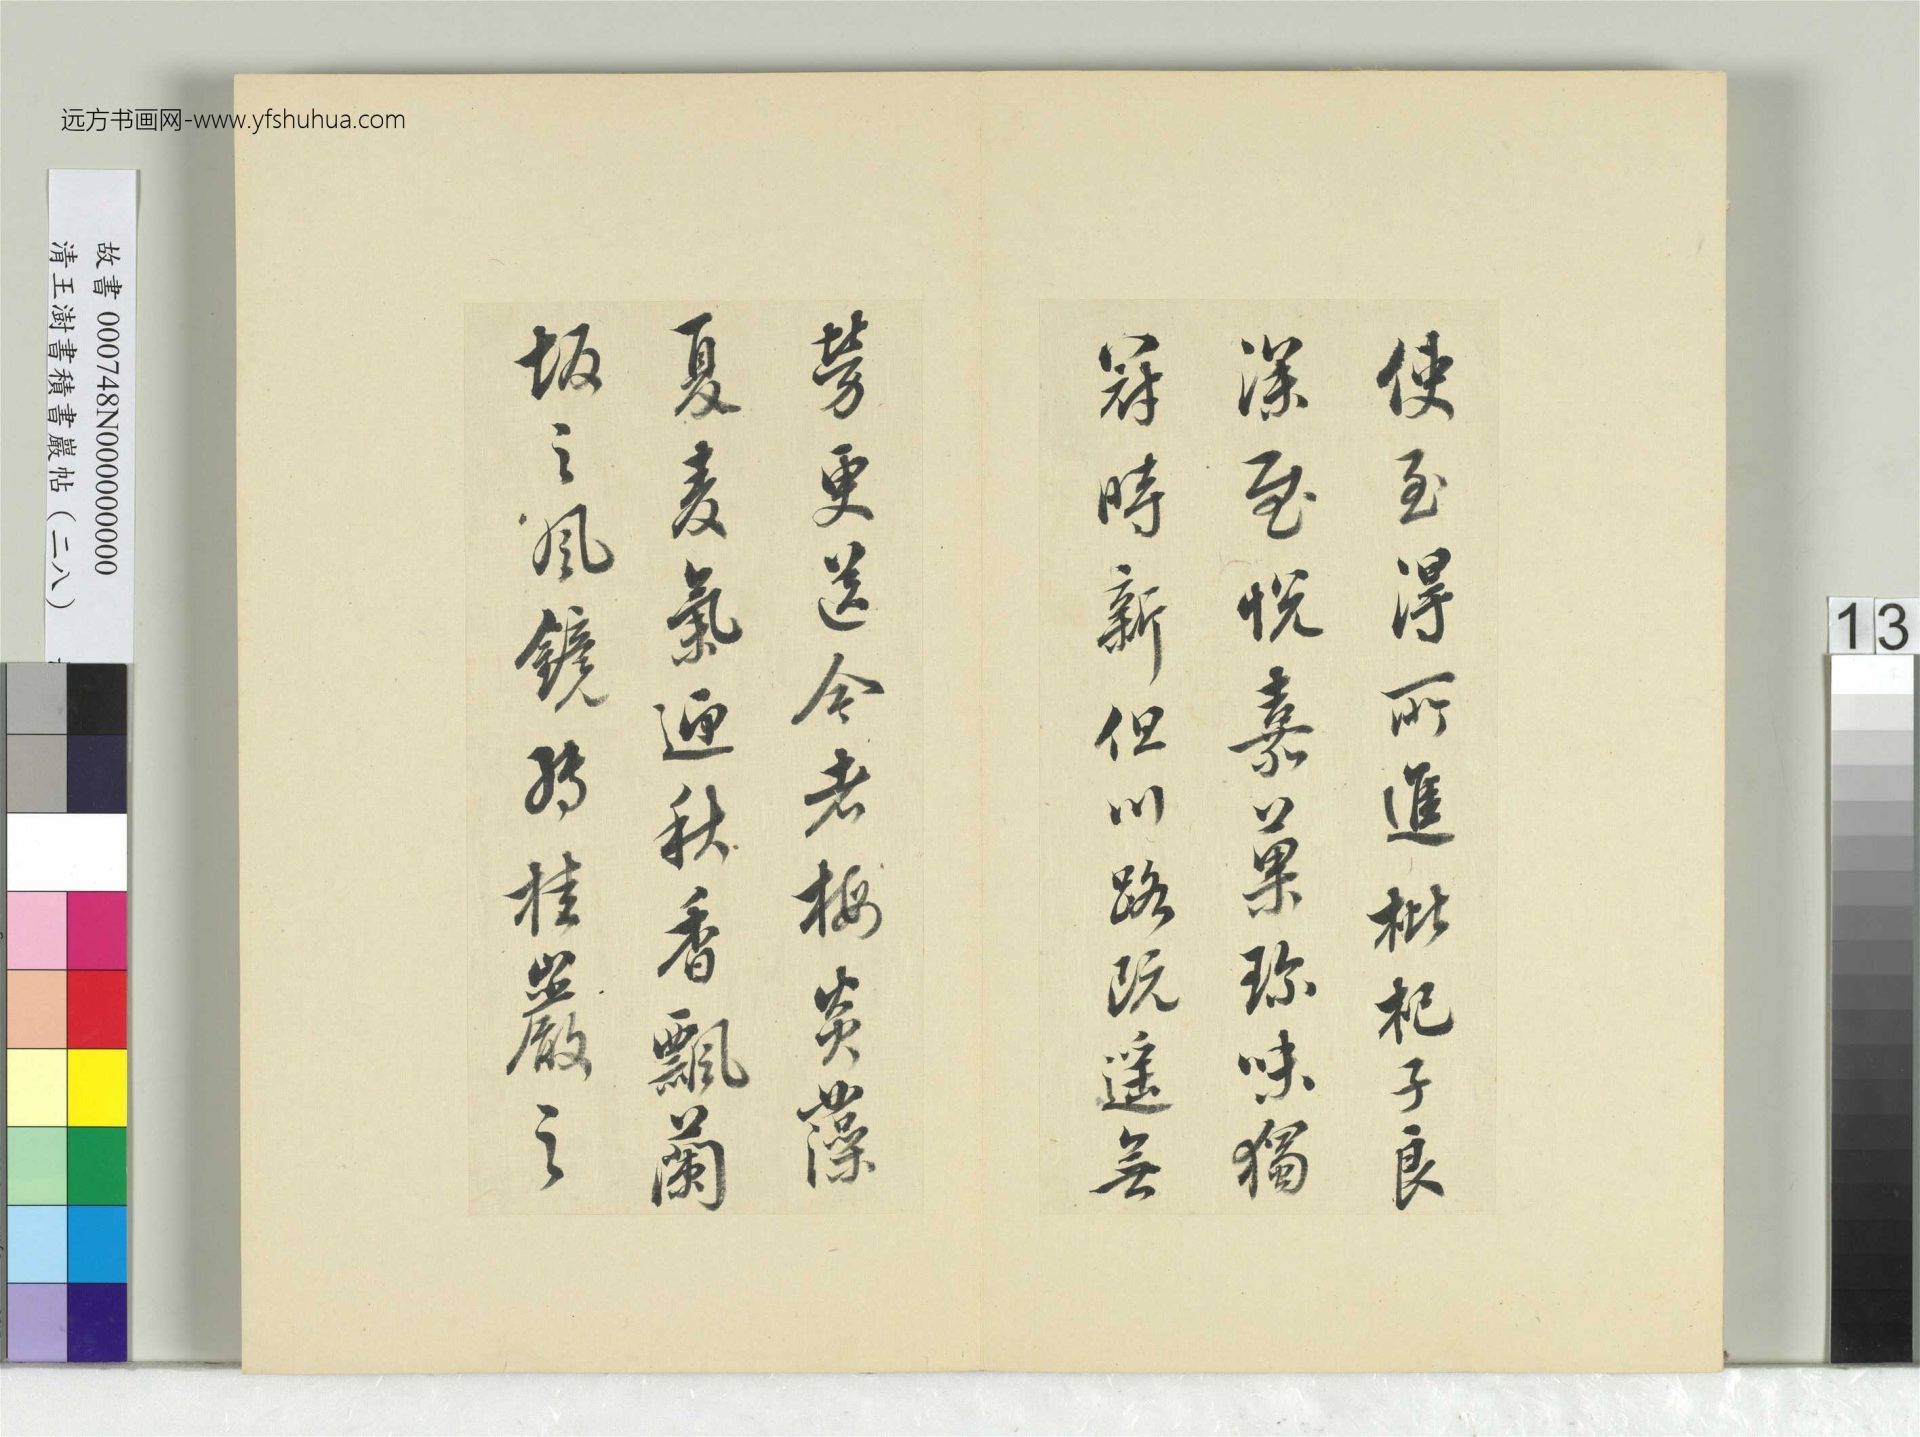 使至得所進枇杷子良
深至悅嘉菓珍味獨
冠時新但川路既遥無
勞更送令老梅炎藻
夏麦氣迎秋香飄蘭
坂之風鏡轉桂巖之
远方书画网-www.yfshuhua.com
故書 000748N000000000
清王澍書積書巖帖(二八)
13